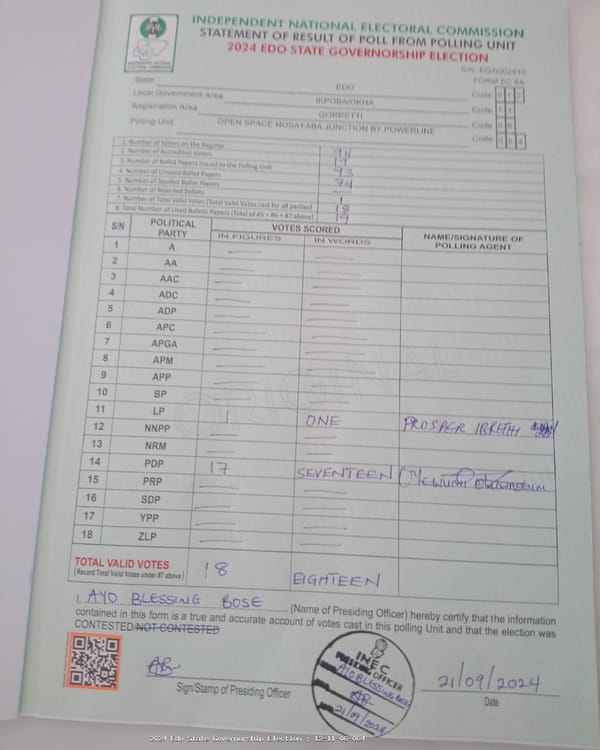 INDEPENDENT NATIONAL ELECTORAL COMMISSION
STATEMENT OF RESULT OF POLL FROM POLLING UNIT
2024 EDO STATE GOVERNORSHIP ELECTION
FORM EC 8A
State EDO Code 0 1 2
Local Government Area IKPOBA/OKHA Code 1 1
Registration Area GORRETTI Code 0 6
Polling Unit OPEN SPACE NOSAYABA JUNCTION BY POWERLINE Code 0 6 4
1. Number of Voters on the Register
2. Number of Accredited Voters 19
3. Number of Ballot Papers Issued to the Polling Unit 93
4. Number of Unused Ballot Papers 74
5. Number of Spoiled Ballot Papers
6. Number of Rejected Ballots 1
7. Number of Total Valid Votes (Total Valid Votes cast for all parties) 18
8. Total Number of Used Ballots Papers (Total of #5 + #6 + #7 above) 19
S/N POLITICAL PARTY VOTES SCORED NAME/SIGNATURE OF POLLING AGENT
IN FIGURES IN WORDS
1 A
2 AA
3 AAC
4 ADC
5 ADP
6 APC
7 APGA
8 APM
9 APP
10 BP
11 LP 1 ONE PROSPER
12 NNPP
13 NRM
14 PDP 17 SEVENTEEN
15 PRP
16 SDP
17 YPP
18 ZLP
ORIGINAL
TOTAL VALID VOTES 18 EIGHTEEN
(Record Total Valid Votes under #7 above)
I, AYO BLESSING BOSE (Name of Presiding Officer) hereby certify that the information
contained in this form is a true and accurate account of votes cast in this polling Unit and that the election was
CONTESTED/NOT CONTESTED
AB
Sign/Stamp of Presiding Officer
INEC
PRESIDING OFFICER
AYO BLESSING BOSE
21/09/2024
21/09/2024
Date
2024 Edo State Governorship Election : 12-11-06-064